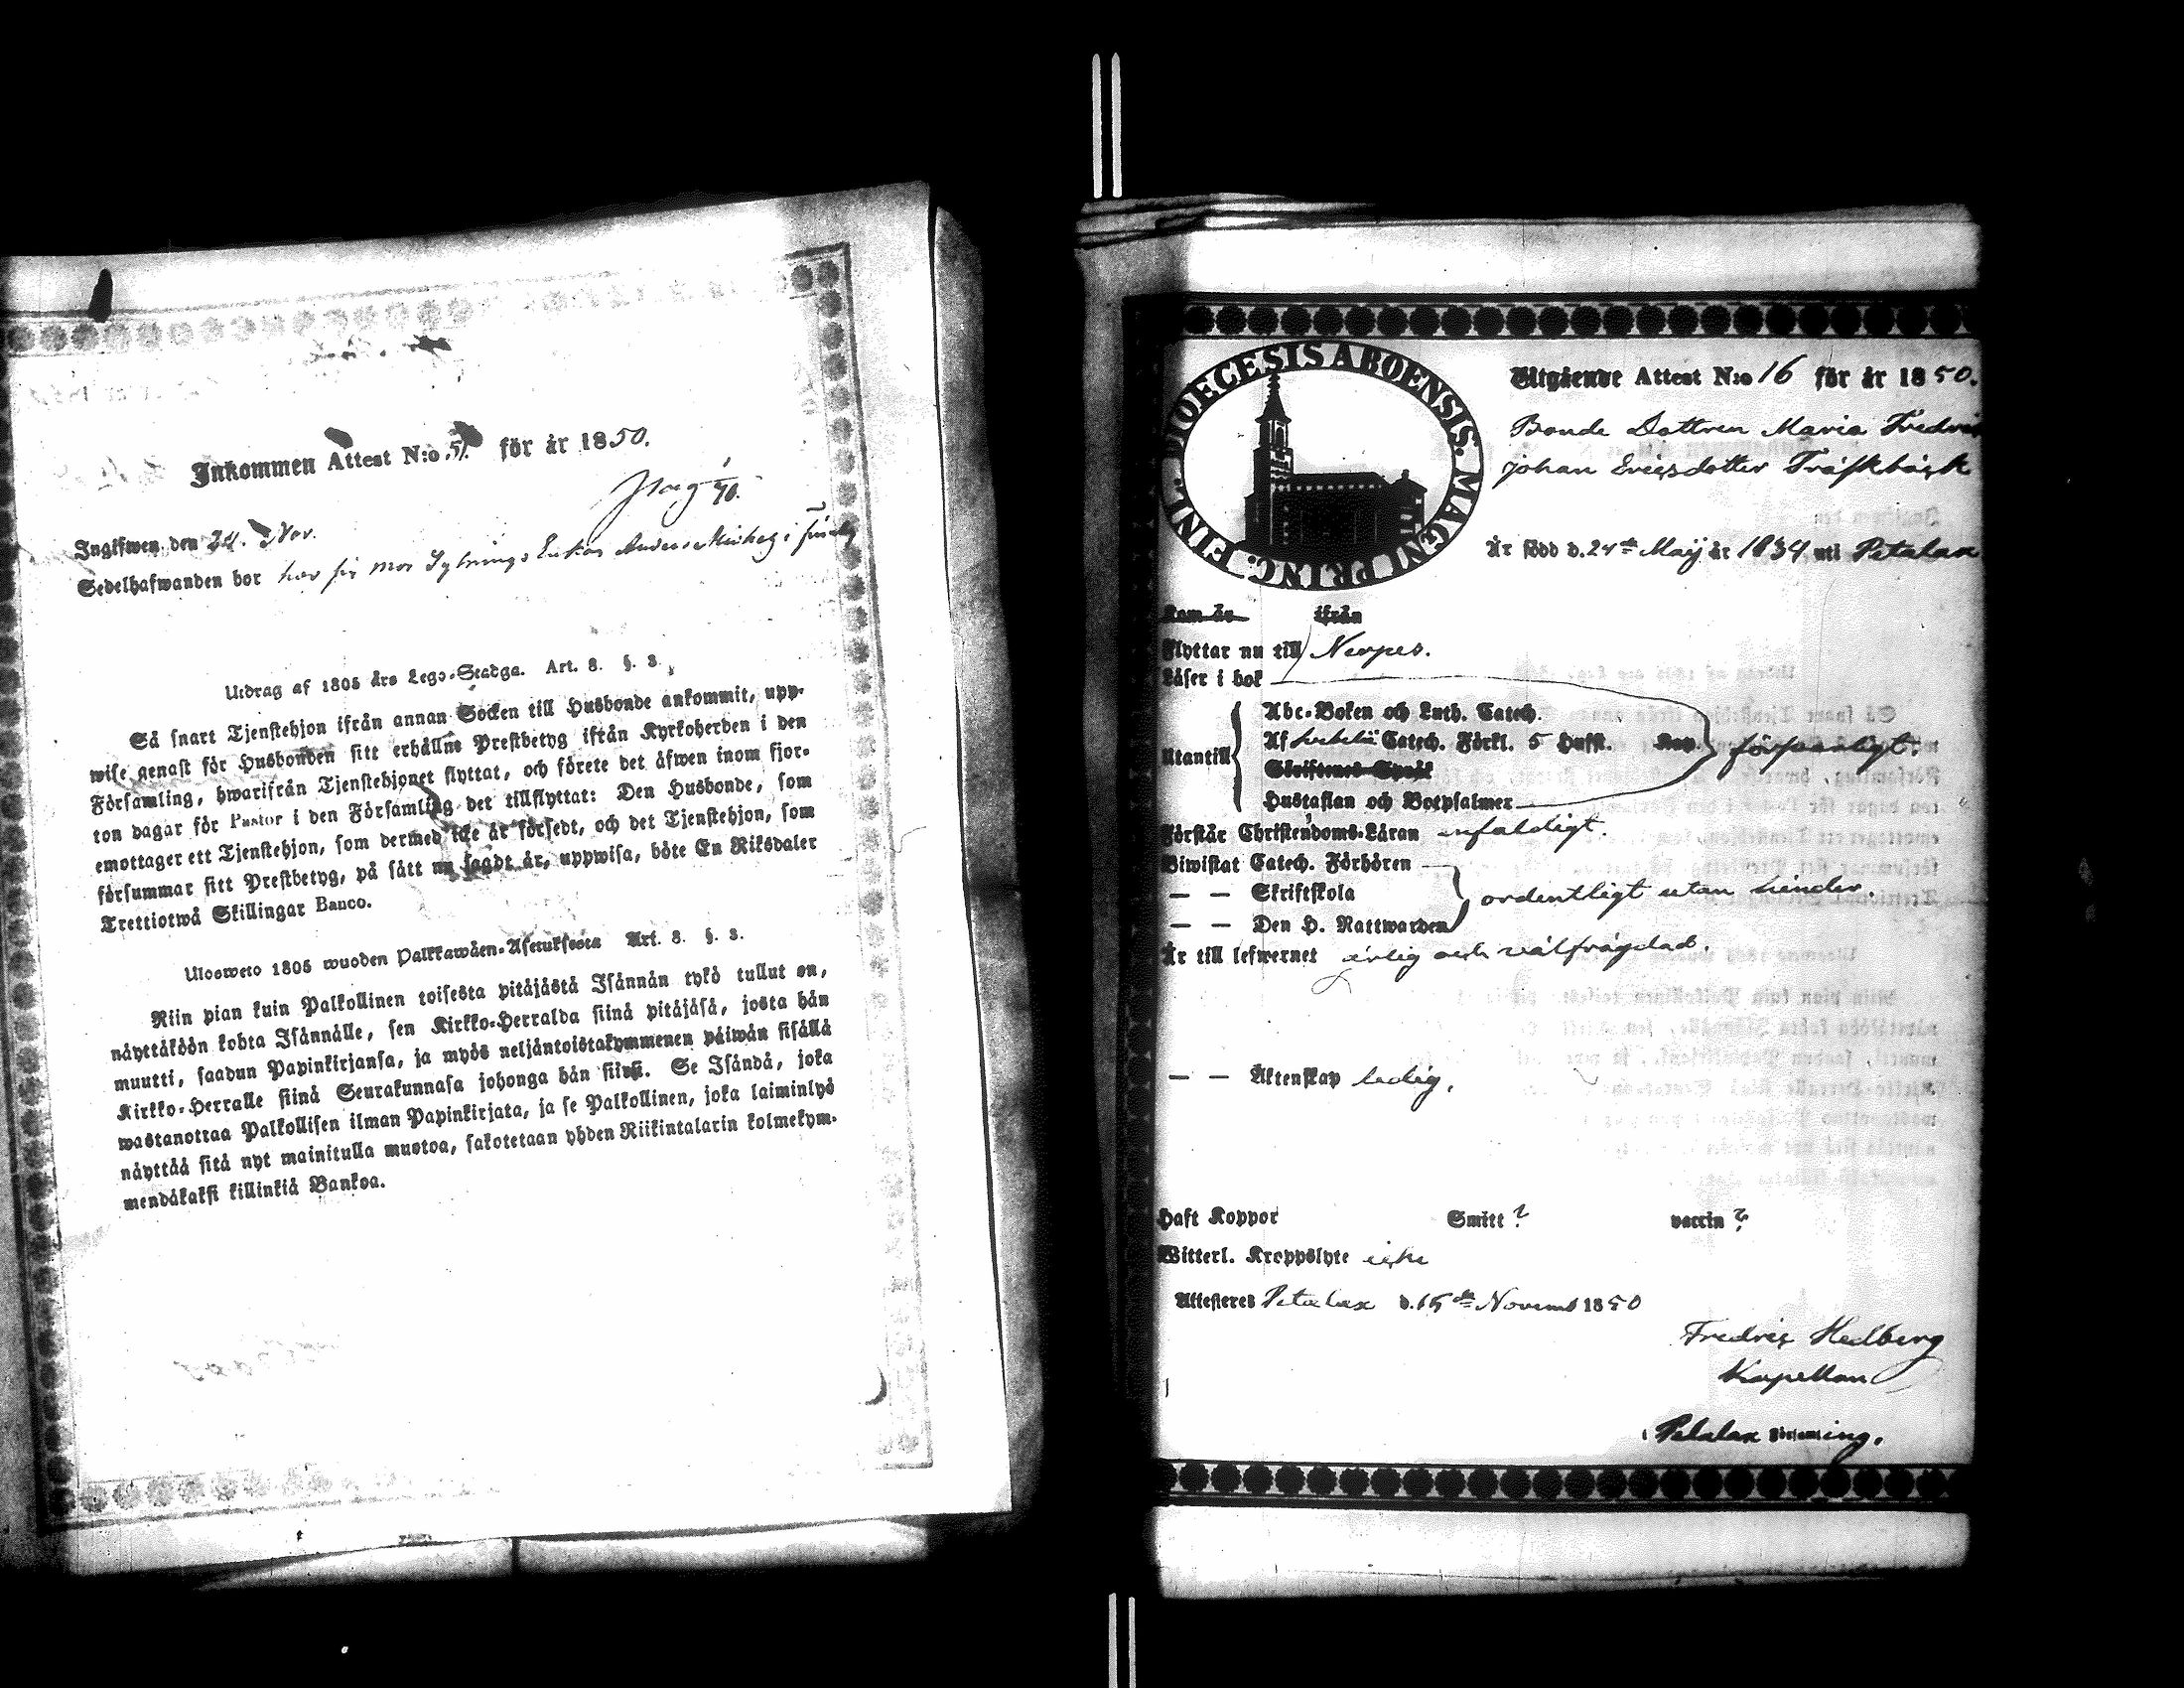 Inkommen Attest N:o 51. för år 1850.
Ingifwen den 24. Nov.
Sedelhafwanden bor hos sin mor Sytnings Enkan
Utdrag af 1805 års Lego-Stadga. Art. 8. §. 3.
Så snart Tjenstehjon ifrån annan Socken till Husbonde ankommit, upp-
wise genast för Husbonden sitt erhållne Prestbetyg ifrån Kyrkoherden i den
Församling, hwarifrån Tjenstehjonet flyttat, och förete det äfwen inom fjor-
ton dagar för Pastor i den Församling det tillflyttat: Den Husbonde, som
emottager ett Tjenstehjon, som dermed icke är försedt, och det Tjenstehjon, som
försummar sitt Prestbetyg, på sätt nu sagdt är, uppwisa, böte En Riksdaler
Trettiotwå Skillingar Banco.
Ulosweto 1805 wuoden Palkkawäen-Asetuksesta Art. 8. §. 3.
Niin pian kuin Palkollinen toisesta pitäjästä Isännän tykö tullut on,
näyttäköön kohta Isännälle, sen Kirkko-Herralda siinä pitäjäsä, josta hän
muutti, saadun Papinkirjansa, ja myös neljäntoistakymmenen päiwän sisällä
Kirkko-Herralle siinä Seurakunnasa johonga hän siirsi. Se Isändä, joka
wastanottaa Palkollisen ilman Papinkirjata, ja se Palkollinen, joka laiminlyö
näyttää sitä nyt mainitulla muotoa, sakotetaan yhden Riikintalarin kolmekym-
mendäkaksi killinkiä Bankoa.
DIOECESIS ABOENSIS. MAGNI PRINC. FINL.
Utgående Attest N:o 16 för år 1850.
Bonde Dottren Maria
Johan Ericsdotter Träskbäck
Är född d. 24de Maij år 1834 uti Petalax
Kom år ifrån
Flyttar nu till Nerpes.
Läser i bok
Utantill
Abc-Boken och Luth. Catech.
Af Catech. Förkl. 5 Hufst. Kap. försvarligt.
Skriftenes Språk
Hustaflan och Botpsalmer
Förstår Christendoms-Läran enfaldigt.
Biwistat Catech. Förhören
— — Skriftskola ordentligt utan hinder.
— — Den H. Nattwarden
Är till lefwernet ärlig och välfrägdad.
— — Äktenskap ledig.
Haft Koppor Smitt ? vaccin ?
Witterl. Kroppslyte icke
Attesteres Petalax d. 15de Novemb 1850
Fredric Hedberg
Kapellan
i Petalax Församling.